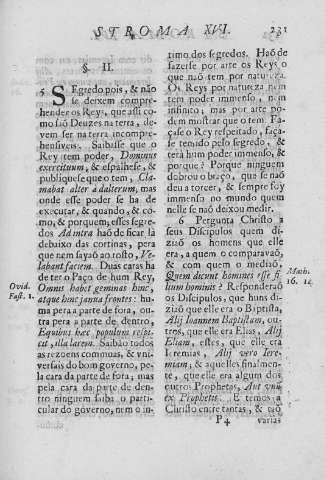 STROMA XVI. 231
§. II.
5 SEgredo pois, & naõ
se deixem compre-
hender os Reys, que assi co-
mo saõ Deuzes na terra, de-
vem ser na terra incompre-
hensiveis. Saibasse que o
Rey tem poder, Dominus
exercituum, & espalhese, &
publiquese que o tem, Cla-
mabat alter ad alterum, mas
onde esse poder se ha de
executar, & quando, & co-
mo, & porquem, esses segre-
dos Ad intra haõ de ficar lá
debaixo das cortinas, pera
que nem sayaõ ao rosto, Ve-
labant faciem. Duas caras ha
de ter o Paço de hum Rey,
Omnis habet geminas hinc,
atque hinc janna frontes: hu-
ma pera a parte de fora, ou-
tra pera a parte de dentro,
Equibus hæc populum respi-
cit, illa larem. Saibaõ todos
as rezoens commuas, & vni-
versais do bom governo, pe-
la cara da parte de fora; mas
pela cara da parte de den-
tro ninguem saiba o parti-
cular do governo, nem o in-
Ovid.
Fast. 1.
timo dos segredos. Haõ de
fazerse por arte os Reys o
que naõ tem por natureza.
Os Reys por natureza nem
tem poder immenso, nem
infinito; mas por arte po-
dem mostrar que o tem. Fa-
çase o Rey respeitado, faça-
se temido pelo segredo, &
terá hum poder immenso, &
porque? Porque ninguem
dobrou o braço, que se nao
deu a torcer, & sempre foy
immenso no mundo quem
nelle se naõ deixou medir.
6 Pergunta Christo a
seus Discipulos quem di-
ziaõ os homens que elle
era, a quem o comparavaõ,
& com quem o mediaõ,
Quem dicunt homines esse fi-
lium hominis? Responderaõ
os Discipulos, que huns di-
ziaõ que elle era o Baptista,
Alij Ioannem Baptistam, ou-
tros, que elle era Elias, Alij
Eliam, estes, que elle era
Ieremias, Alij vero Iere-
miam; & aquelles finalmen-
te, que elle era algum dos
outros Prophetas, Aut vnũ
ex Prophetis. E temos a
Christo entre tantas, & taõ
Math.
16. 14.
P4 varias